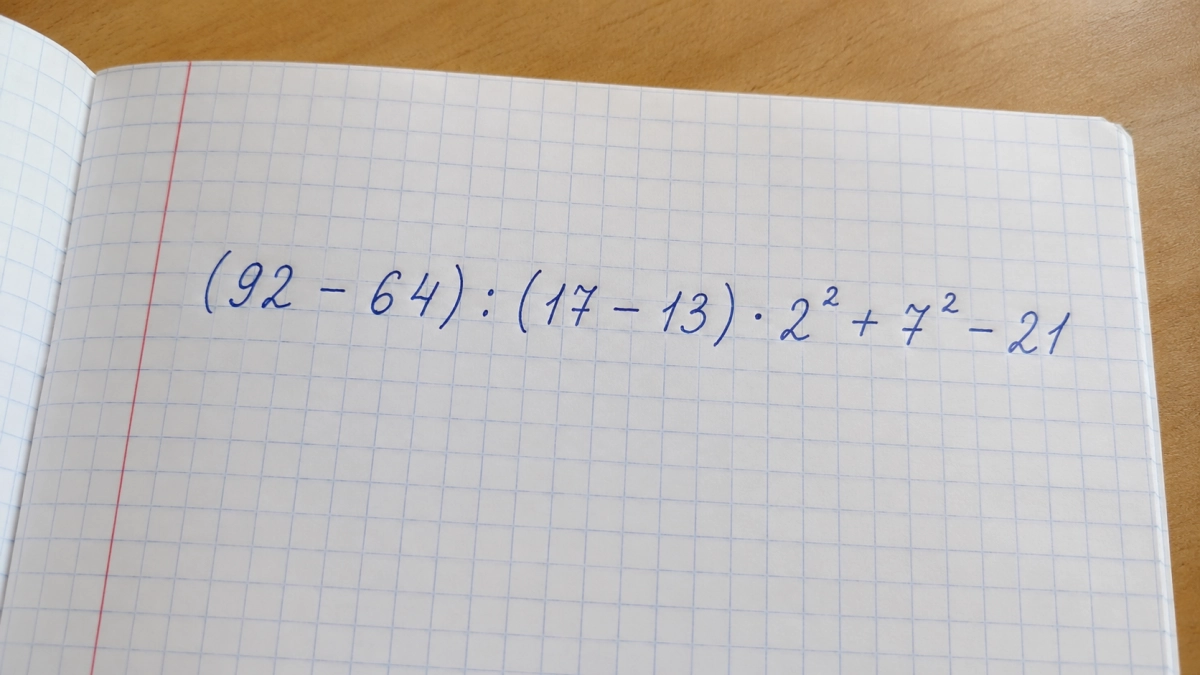 (92 - 64) : (17 - 13) · 2² + 7² - 21